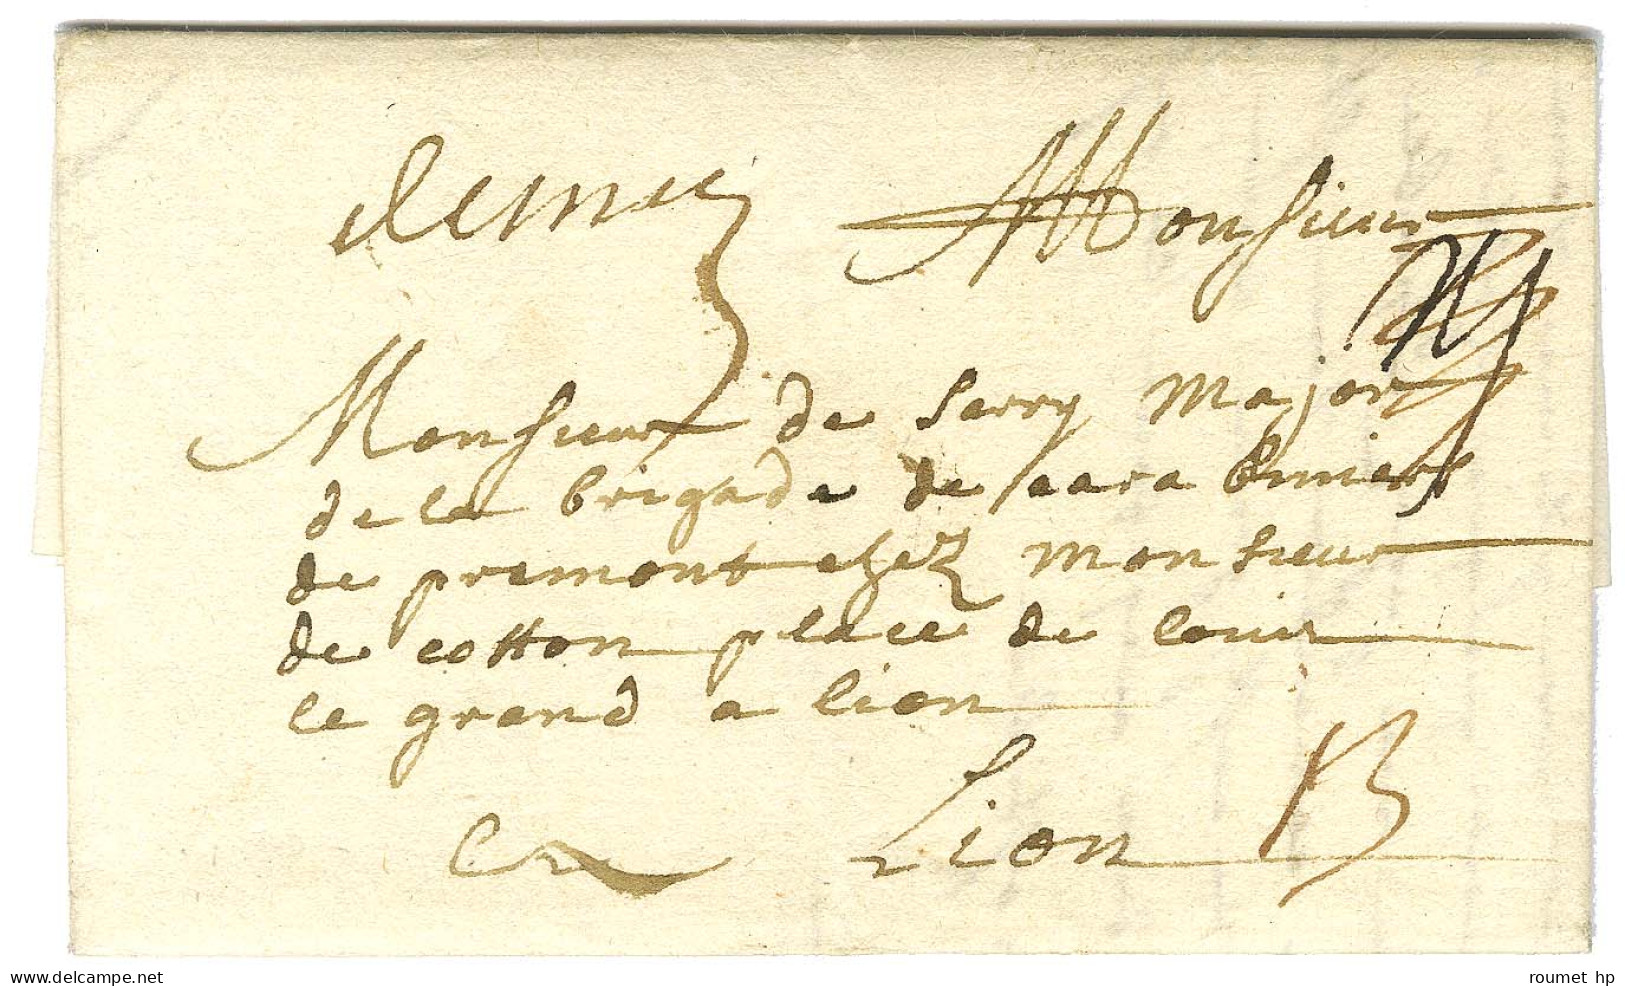 demez Monsieur
Monsieur de Sarry major
de la brigade de carabiniers
de premont chez monsieur
de cotton place de louis
le grand a lion
Lion 13
www.delcampe.net
roumet hp